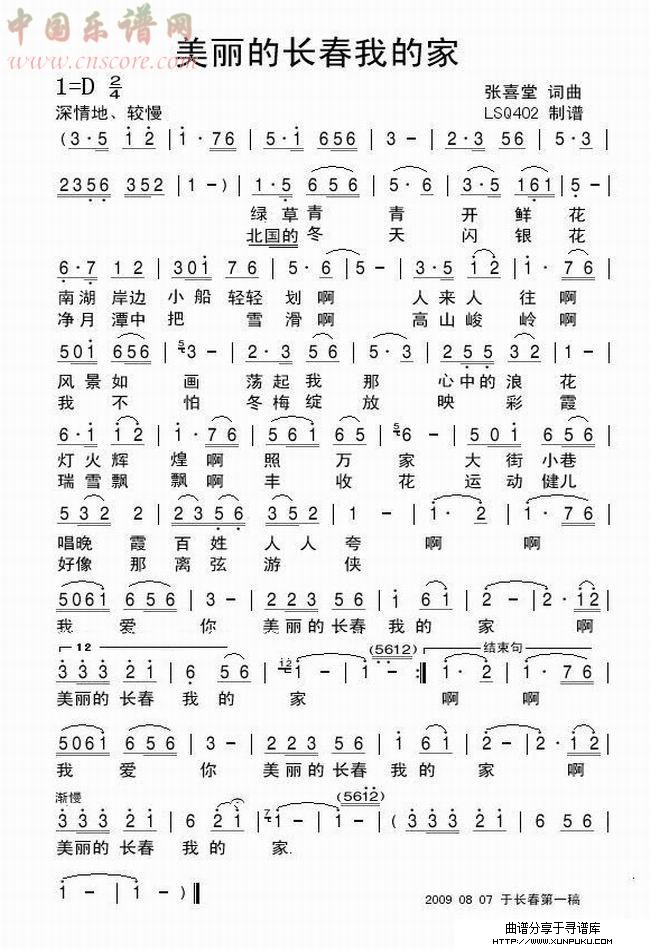 中国乐谱网
www.cnscore.com
美丽的长春我的家
1=D 2/4
张喜堂 词曲
深情地、较慢
LSQ402 制谱
(3·5 1 2 | 1·76 | 5·1 656 | 3 - | 2·3 56 | 5·3 |
2356 352 | 1 -) | 1·5 656 | 5·6 | 3·5 161 | 5 - |
绿草青 青 开 鲜 花
北国的冬 天 闪 银 花
6·7 12 | 301 76 | 5·6 | 5 - | 4·3 12 | 1·76 |
南湖 岸边 小船 轻轻 划啊 人来人 往啊
净月 潭中 把 雪 滑啊 高山峻 岭啊
501 656 | 53 - | 2·3 56 | 5·3 | 255 32 | 1 - |
风景如 画 荡起我 那 心中的浪 花
我 不 怕 冬梅绽 放 映 彩 霞
6·1 12 | 1·76 | 561 65 | 56 - | 501 656 |
灯火辉 煌啊 照 万 家 大街小巷
瑞雪飘 飘啊 丰 收 花 运动健儿
532 2 | 2356 352 | 1 - | 1·2 | 1·76 |
唱晚 霞百姓 人人 夸 啊 啊
好像 那离弦 游 侠
5061 656 | 3 - | 223 56 | 1 61 | 2 - | 2·12 |
我 爱 你 美丽的长春 我的 家 啊
12
(5612)
结束句
333 21 | 6 56 | 121 - | 1 - :| 1·2 | 1·76 |
美丽的长春 我的 家 啊 啊
5061 656 | 3 - | 223 56 | 1 61 | 2 - | 2·12 |
我 爱 你 美丽的长春 我的 家 啊
渐慢
(5612)
333 21 | 6 21 | 71 - | 1 - | (333 21 | 6 56 |
美丽的长春 我的 家.
1 - | 1 -) ‖
2009 08 07 于长春第一稿
曲谱分享于寻谱库
HTTP://WWW.XUNPUKU.COM